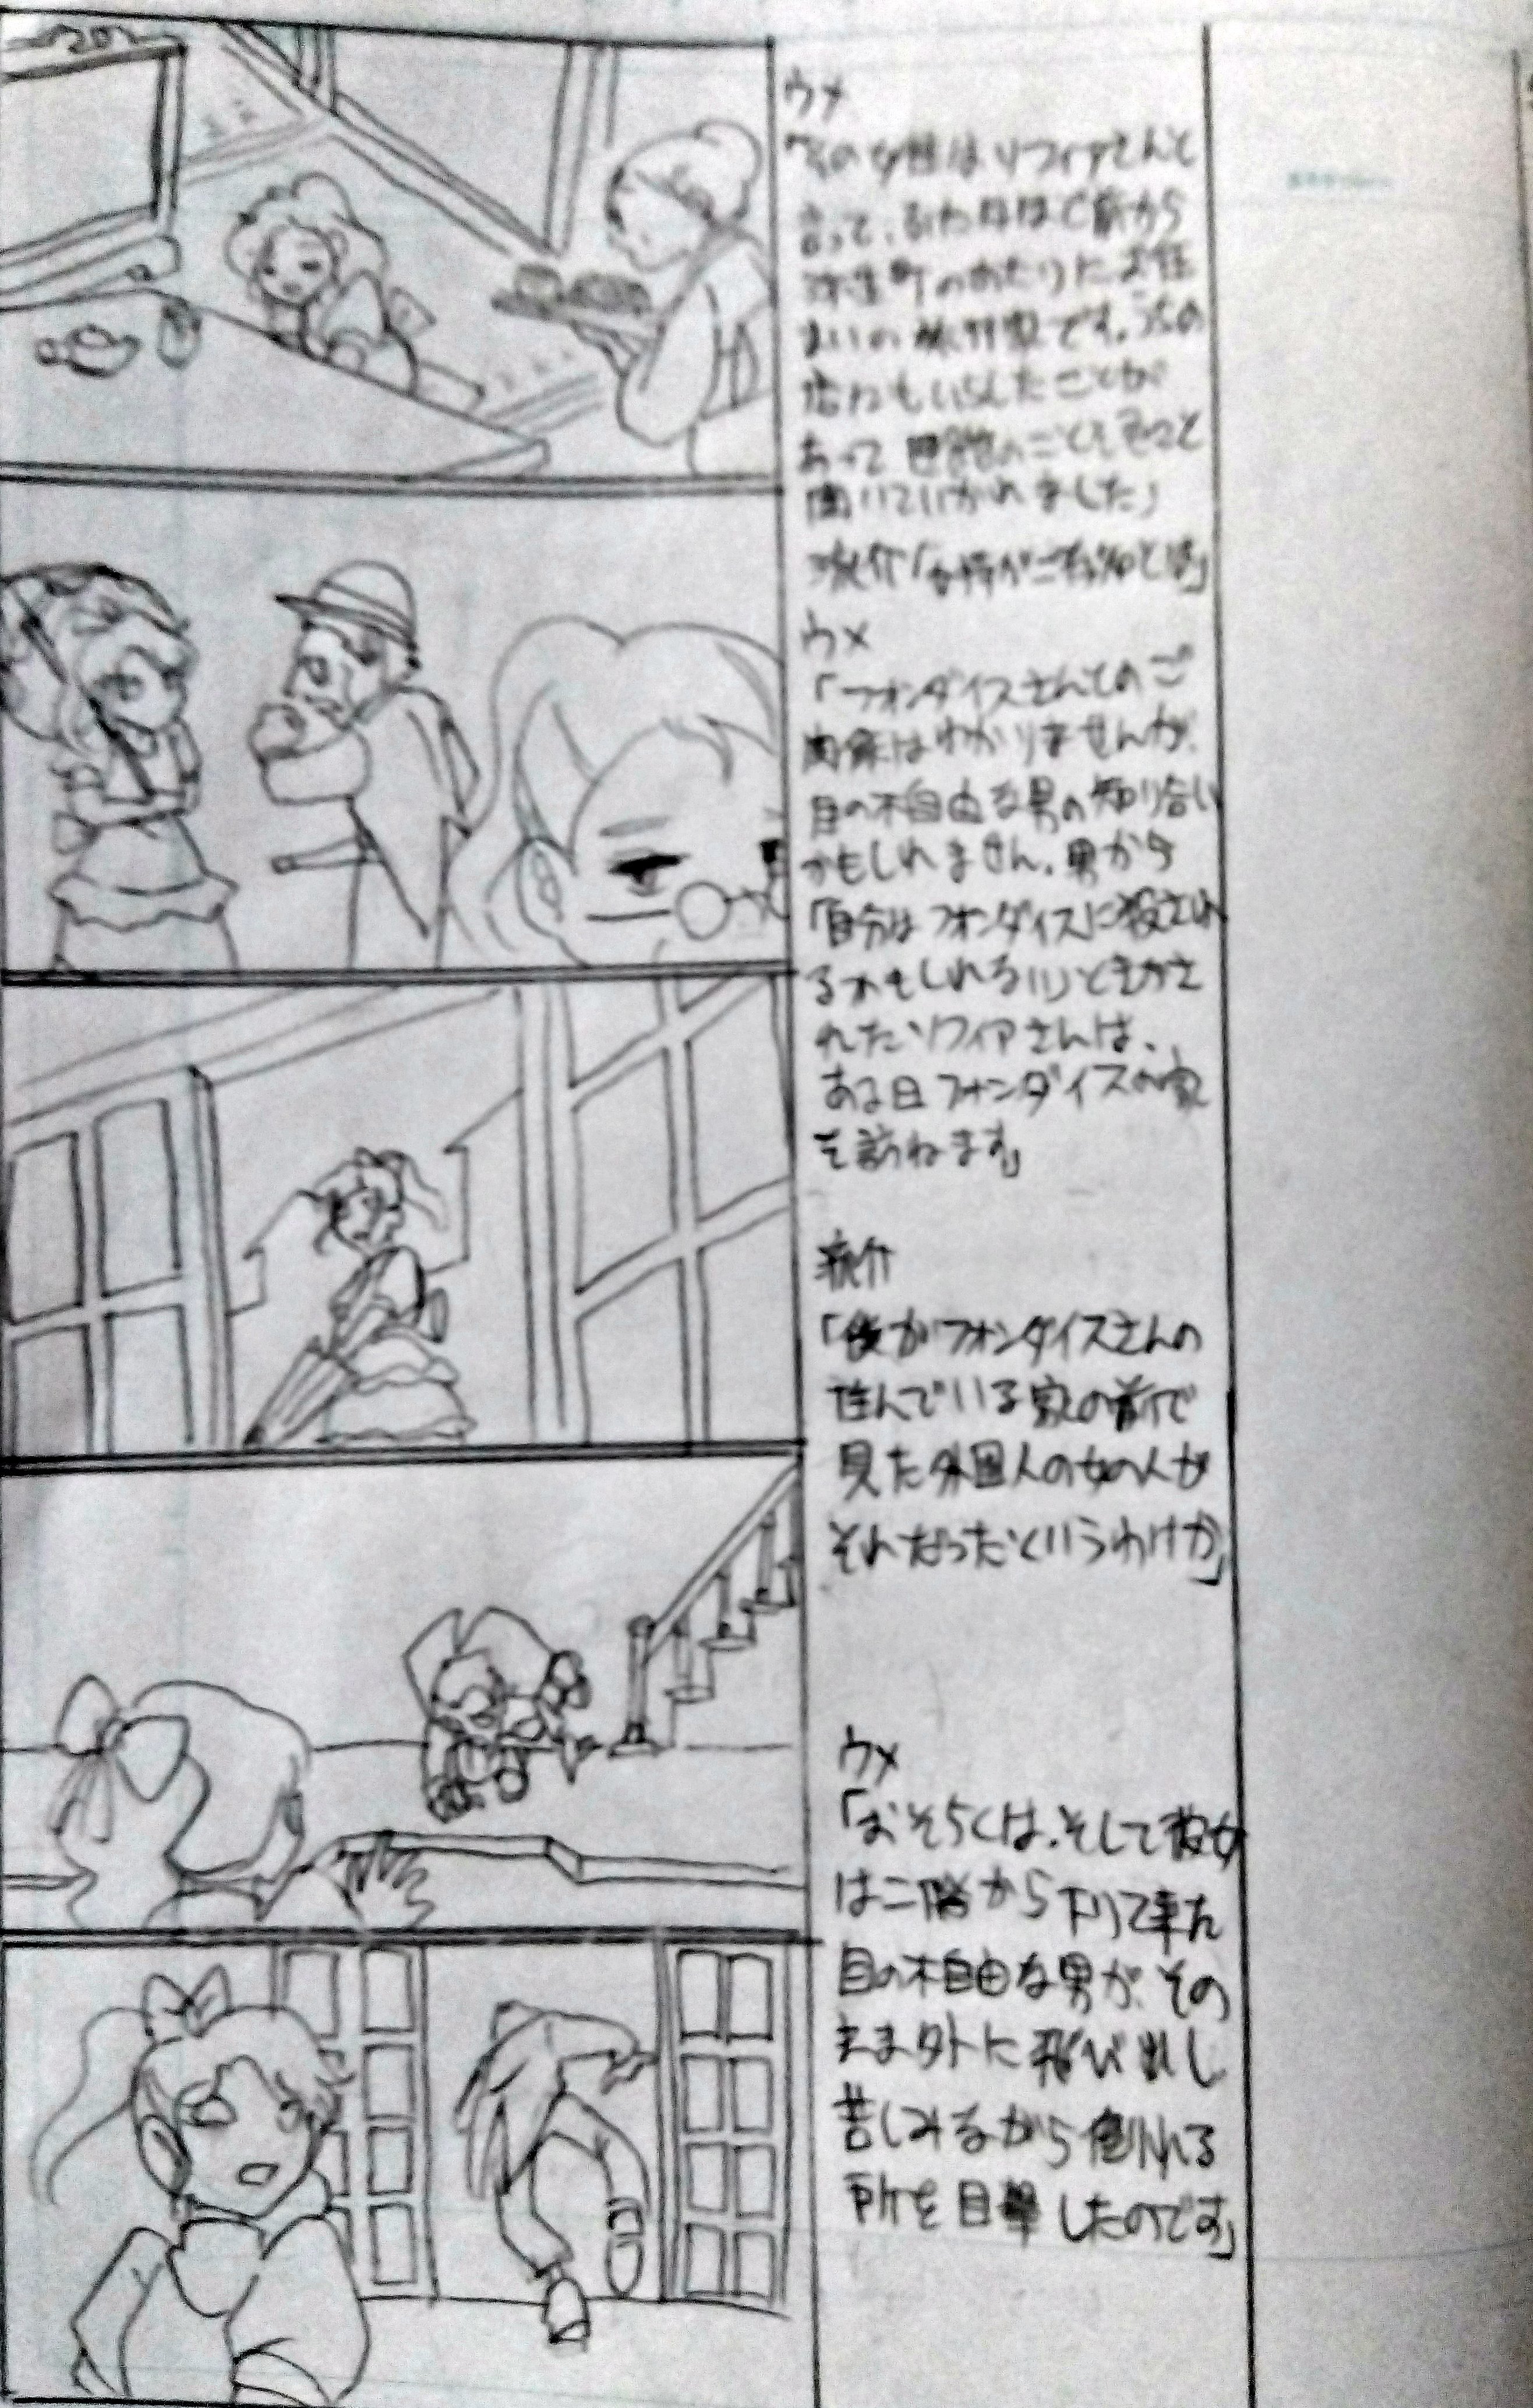 ウメ
の女性はソフィアさんと
言って、ふた月ほど前から
弥生町のあたりにお住
まいの旅行家です。うちの
店にもいらしたことが
あって 色々と
聞いていかれました」
ウメ
「フォンダイスさんとのご
関係はわかりませんが、
目の不自由な男の知り合い
かもしれません。男から
「自分はフォンダイスに殺され
るかもしれない」ときかさ
れたソフィアさんは、
ある日フォンダイスの家
を訪ねます」
「僕がフォンダイスさんの
住んでいる家の前で
見た外国人の女の人が
それだったというわけか」
ウメ
「おそらくは、そして彼女
は二階から下りて来た
目の不自由な男が、その
まま外に飛び出し
苦しみながら倒れる
所を目撃したのです」